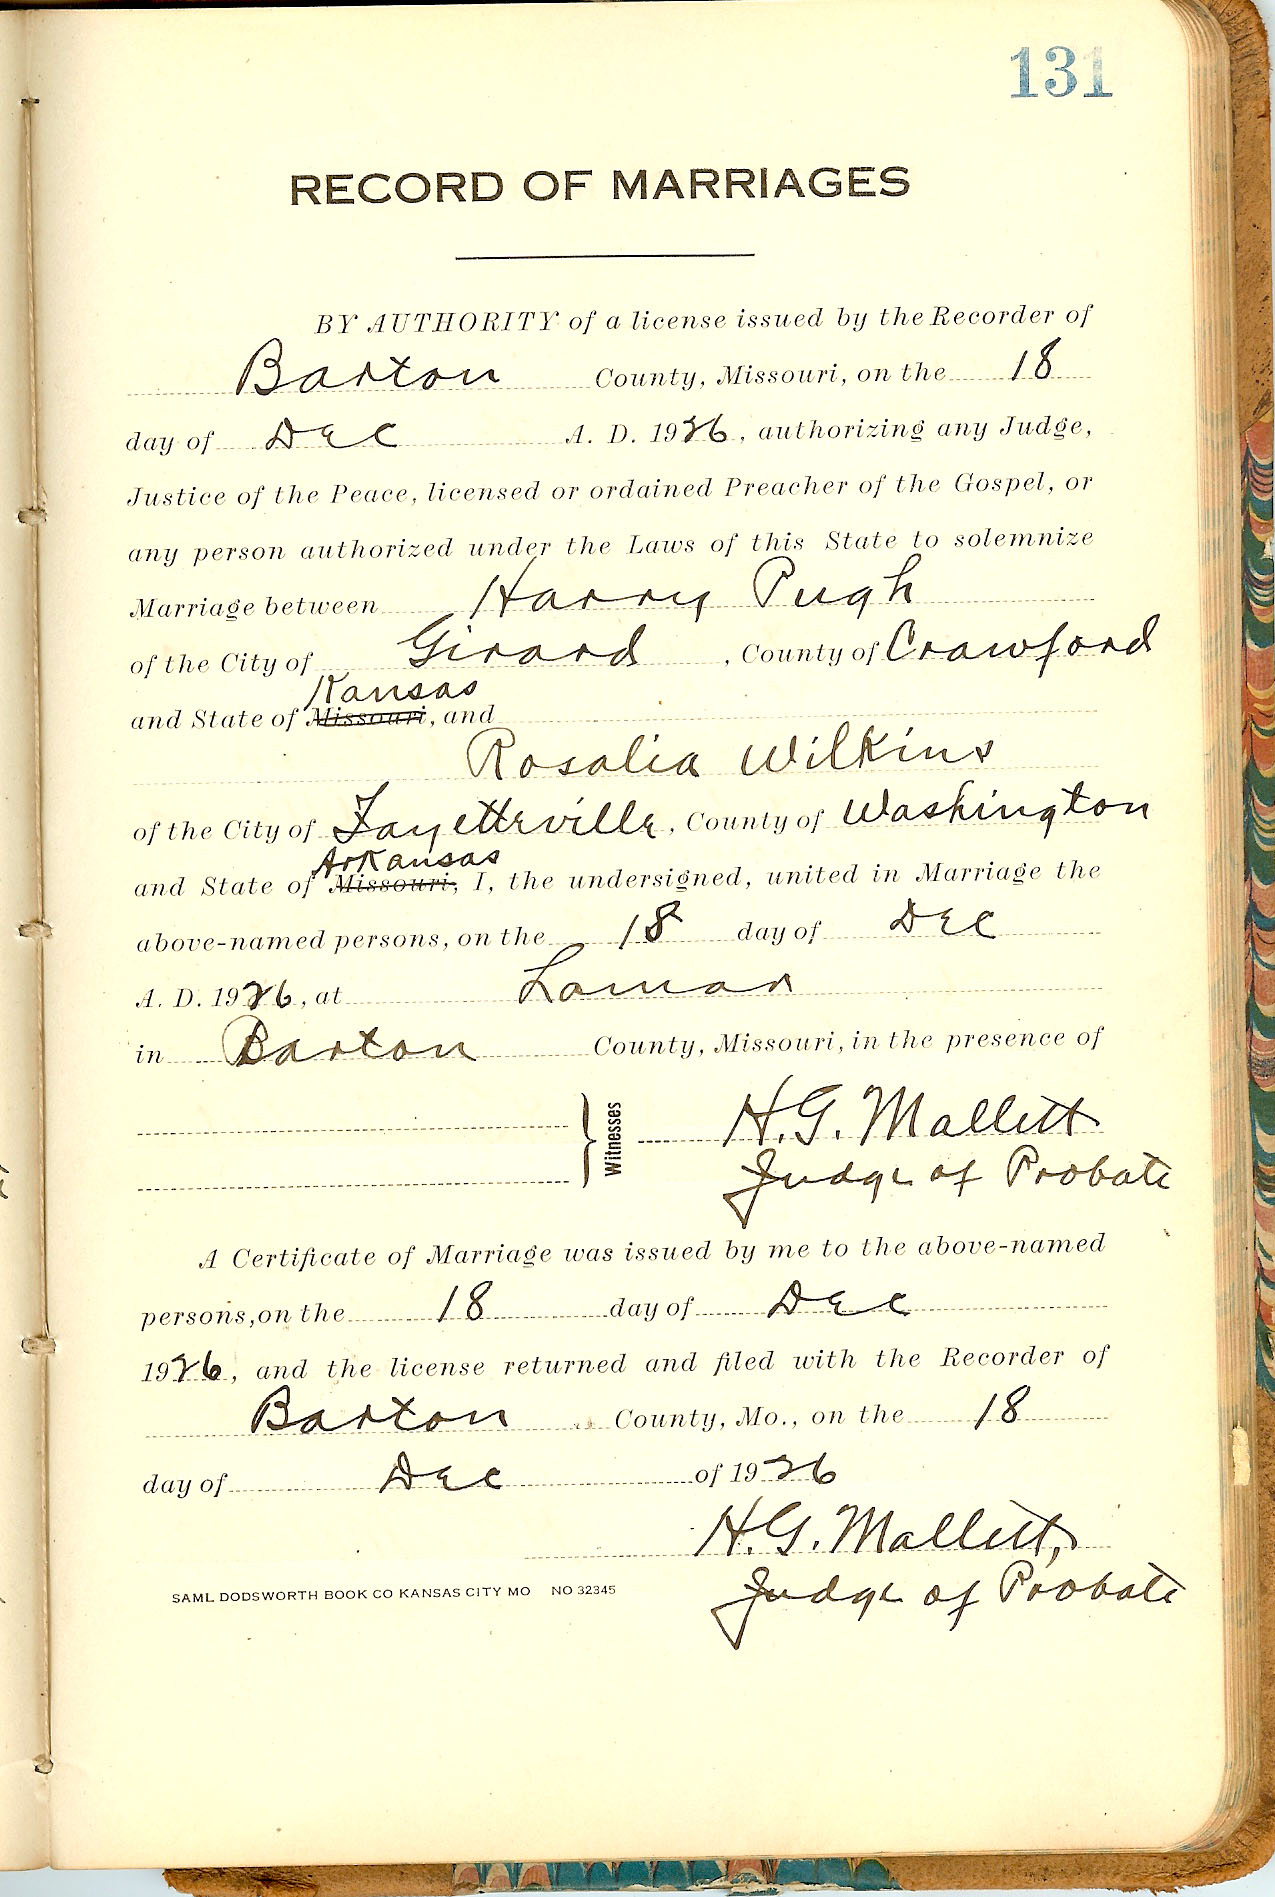 131
RECORD OF MARRIAGES
BY AUTHORITY of a license issued by the Recorder of
Barton County, Missouri, on the 18
day of Dec A. D. 1926, authorizing any Judge,
Justice of the Peace, licensed or ordained Preacher of the Gospel, or
any person authorized under the Laws of this State to solemnize
Marriage between Harry Pugh
of the City of Girard, County of Crawford
Kansas
and State of Missouri, and
Rosalia Wilkins
of the City of Fayetteville, County of Washington
Arkansas
and State of Missouri, I, the undersigned, united in Marriage the
above-named persons, on the 18 day of Dec
A. D. 1926, at Lamar
in Barton County, Missouri, in the presence of
Witnesses H. G. Mallett
Judge of Probate
A Certificate of Marriage was issued by me to the above-named
persons, on the 18 day of Dec
1926, and the license returned and filed with the Recorder of
Barton County, Mo., on the 18
day of Dec of 1926
H. G. Mallett,
SAML DODSWORTH BOOK CO KANSAS CITY MO NO 32345
Judge of Probate